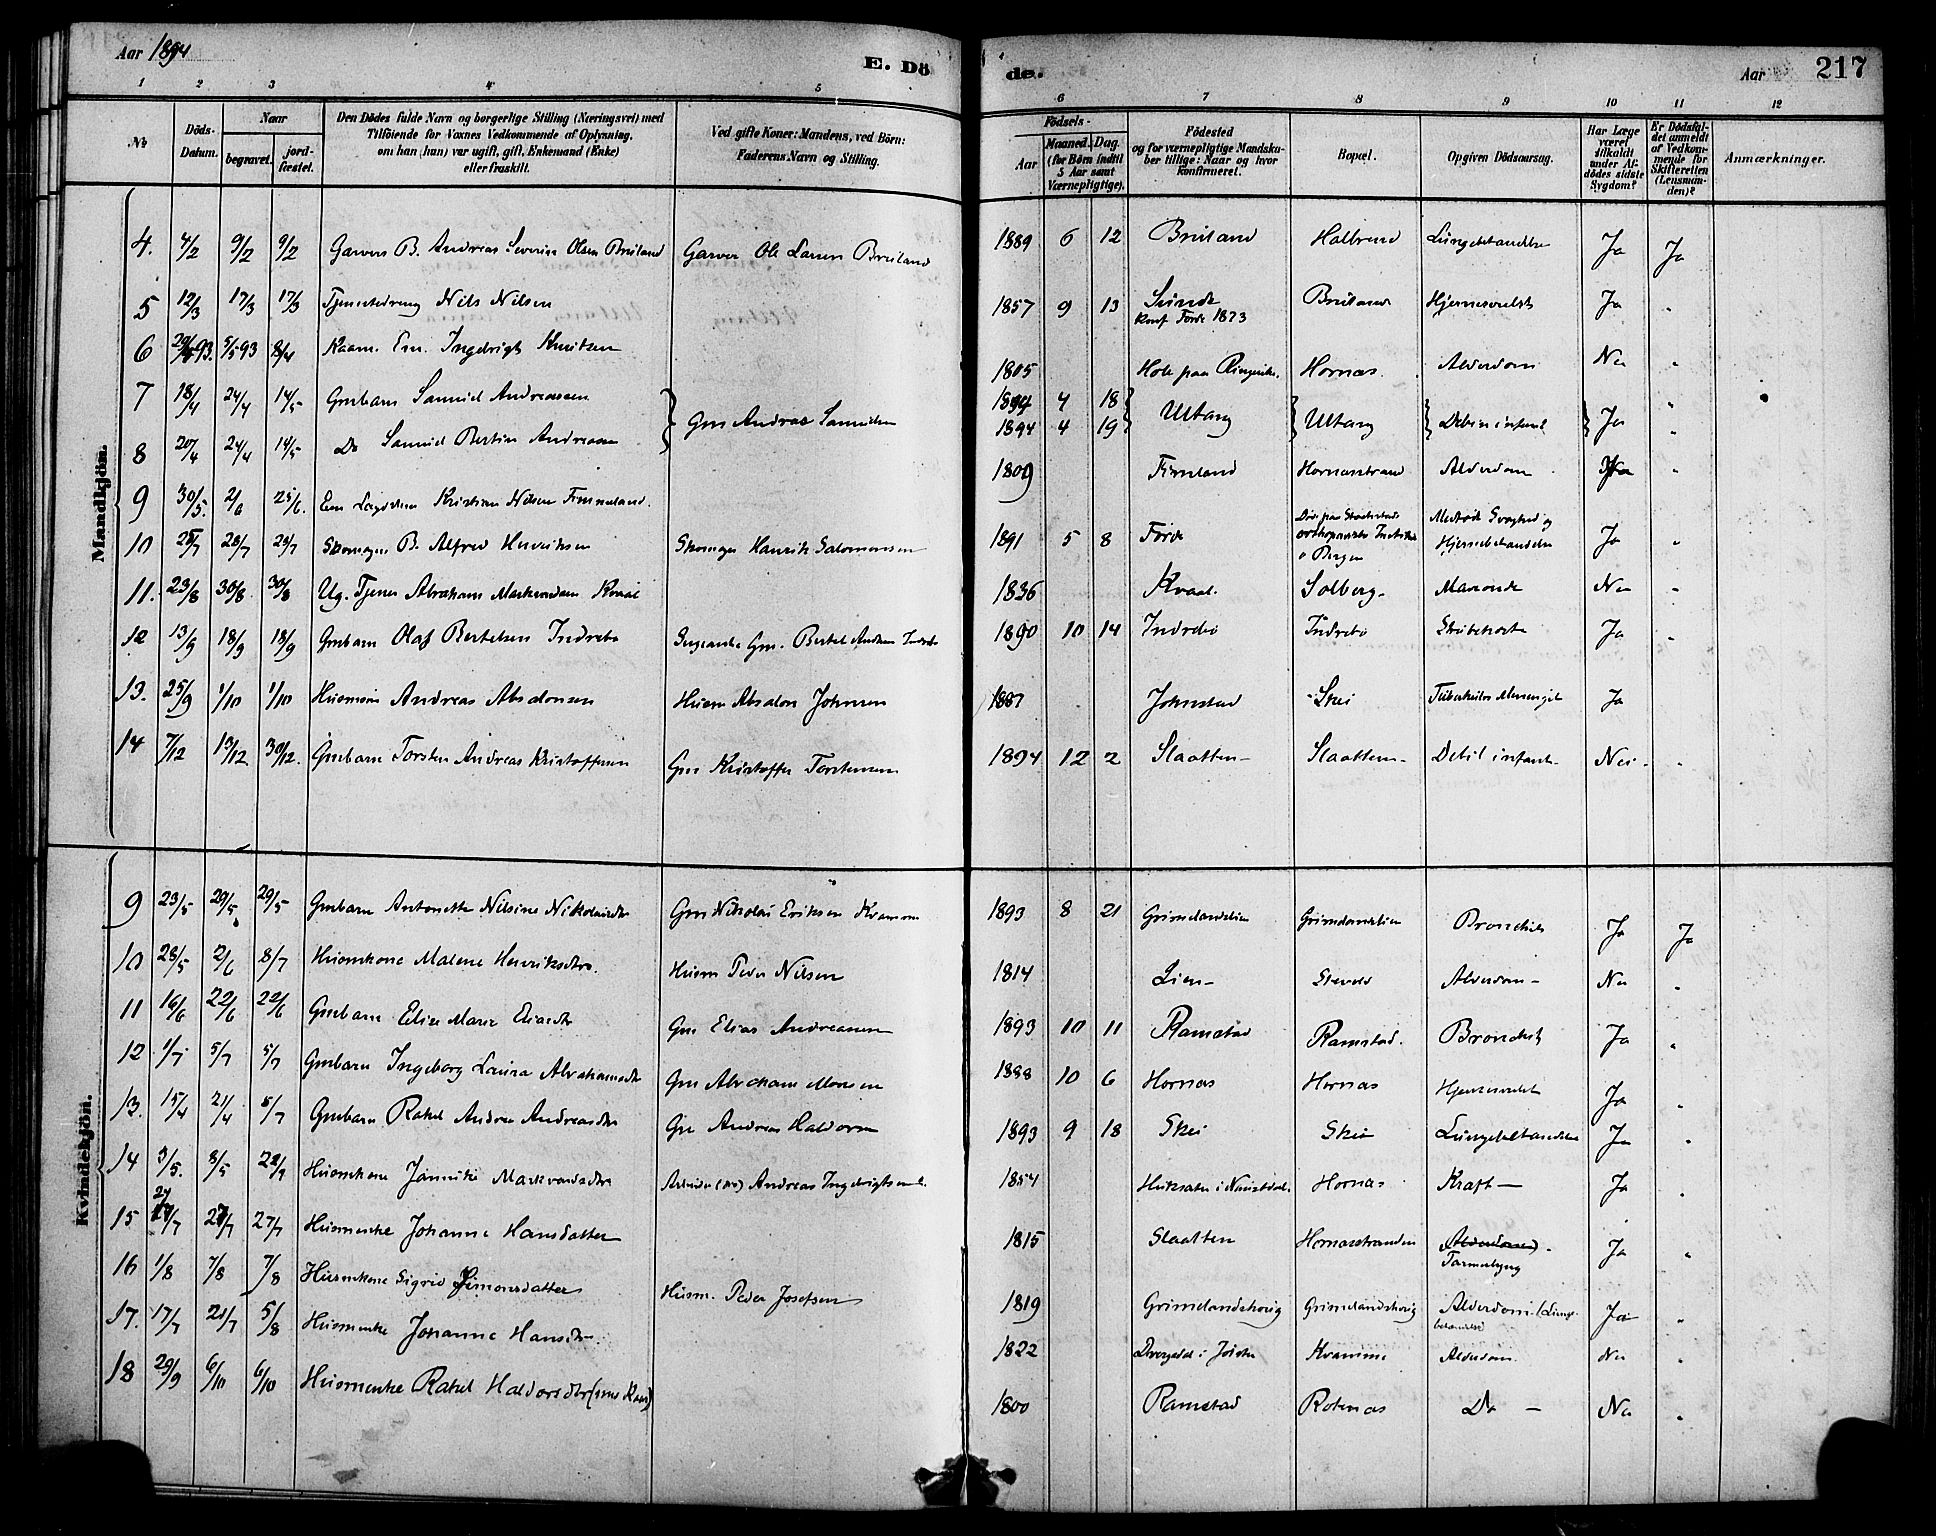 Aar 1894
E. Dö
de.
Aar
217
1 2 3 4 5 6 7 8 9 10 11 12
No
Döds-Datum.
Naar
begravet.
jord-fæstet.
Den Dödes fulde Navn og borgerlige Stilling (Næringsvei) med
Tilföiende for Voxnes Vedkommende af Oplysning,
om han (hun) var ugift, gift, Enkemand (Enke)
eller fraskilt.
Ved gifte Koner: Mandens, ved Börn:
Faderens Navn og Stilling.
Födsels-
Aar
Maaned. Dag.
(for Börn indtil
5 Aar samt
Værnepligtige).
Födested
og for værnepligtige Mandska-
ber tillige: Naar og hvor
konfirmeret.
Bopæl.
Opgiven Dödsaarsag.
Har Læge
været
tilkaldt
under Af-
dödes sidste
Sygdom?
Er Dödsfal-
det anmeldt
af Vedkom-
mende for
Skifteretten
(Lensman-
den)?
Anmærkninger.
Mandkjön.
4. 4/2 9/2 9/2 Garvers B. Andreas Severin Olsen Bruland Garver Ole Larsen Bruland 1889 6 12 Bruland Halbrend Lungebetændelse Ja Ja
5 12/3 17/3 17/3 Tjenestedreng Nils Nilsen 1857 9 13 Sunde Bruland Hjernesvulst Ja "
konf Förde 1873
6 5/5 93 8/4 Kaarm. Em. Ingebrigt Knutsen 1805 Hole paa Ringerike. Hornæs. Alderdom Nei "
7 18/4 24/4 14/5 Gmbarn Samuel Andreassen } Gm Andreas Samuelsen 1894 4 18 } Ultang } Ultang } Debil. infant } Ja "
8 20/4 24/4 14/5 Do Samuel Bertin Andreassen 1894 4 19 "
9 30/5. 2/6 25/6. Em Lægdslem Kristian Nilsen Fimmeland. 1809 Fimland Hornæsstrand Alderdom "
10 28/7 28/7 Skomager B. Alfred Henriksen Skomager Henrik Salomonsen 1891 5 8 Förde Död paa Hjernebetændelse Ja "
i Bergen
11. 23/8 30/8 30/8 Ug. Tjener Abraham Markvardsen Kvaal 1836 Kvaal. Solberg. Nei "
12 13/9 18/9 18/9 Gmbarn Olaf Bertelsen Indrebö Gm. Bertel Andersen Indrebö 1890 10 14 Indrebö Indrebö Strubehoste Ja "
13. 25/9 1/10 1/10 Andreas Absalonsen Husm Absalon Johnsen 1887 Johnstad Skei Tuberkulös Meningit Ja
14 7/12 13/12 30/12. Gmbarn Torsten Andreas Kristoffersen Gm Kristoffer Torstensen 1894 12 2 Slaatten Slaatten Debil. infant Nei "
Kvindekjön.
9 23/5 29/5 29/5 Gmbarn Antonette Nilsine Nikolaidtr Gm Nikolai Eriksen Kvamme 1893 8 21 Grimelandslien Grimelandslien Bronchit Ja Ja
10 28/5 2/6 8/7 Husmkone Malene Henriksdtr. Husm Peder Nilsen 1814 Lien Alderdom Nei "
11 16/6 22/6 22/6 Gmbarn Elise Marie Eliasdtr Gm Elias Andreassen 1893 10 11 Ramstad Ramstad. Bronchit Ja "
12 1/7 5/7 5/7 Gmbarn Ingeborg Laura Abrahamsdtr Gm Abraham Monsen 1888 10 6 Hornæs Hornæs Hjernesvulst Ja "
13. 15/4 21/4 5/7 Gmbarn Rakel Andrea Andreasdtr Gm Andreas Haldorsen 1893 9 18 Skei Skei Lungebetændelse Ja "
14 3/5. 8/5 Husmkone Jannike Markvardsdtr Arbeider Andreas Ingebrigtsen 1854 Hornæs Kræft Ja "
15 27/7 27/7 Husmenke Johanne Hansdatter 1815 Slaatten Hornæsstranden Alderdom Ja "
16 1/8 7/8 7/8 Husmkone Sigrid Simonsdatter Husm. Peder Josefsen 1819 Grimelandshorig Grimelandshorig Alderdom (Lunge- Ja "
betændelse)
17. 17/7 21/7 5/8 Husmenke Johanne Hansdtr. 1822 i Jölster Kvamme Alderdom. Nei "
18 29/9 6/10 6/10 Husmenke Rakel Haldorsdtr 1800 Ramstad Rotnæs Do Nei "